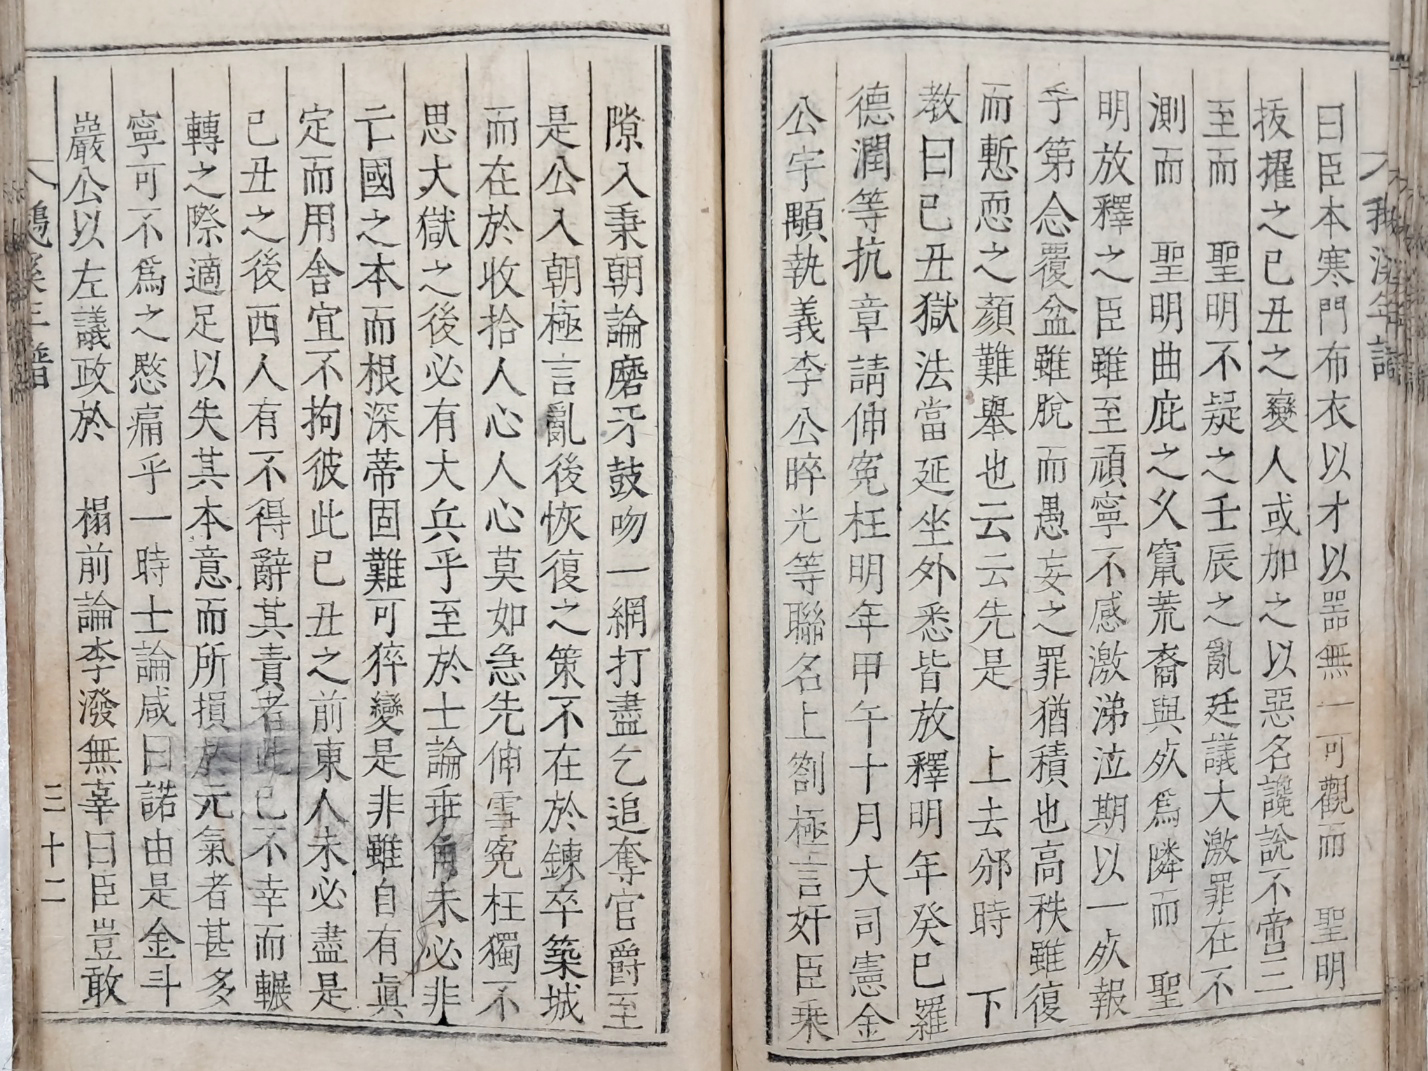 曰臣本寒門布衣以才以器無一可觀而　聖明
拔擢之己丑之變人或加之以惡名讒說不啻三
至而　聖明不疑之壬辰之亂廷議大激罪在不
測而　聖明曲庇之久竄荒裔與死爲隣而　聖
明放釋之臣雖至頑寧不感激涕泣期以一死報
乎第念覆盆雖脫而愚妄之罪猶積也高秩雖復
而慙恧之顏難舉也云云先是　上去邠時　下
教曰己丑獄法當延坐外悉皆放釋明年癸巳羅
德潤等抗章請伸寃枉明年甲午十月大司憲金
公宇顒執義李公晬光等聯名上劄極言奸臣乘
隙入秉朝論磨牙鼓吻一網打盡乞追奪官爵至
是公入朝極言亂後恢復之策不在於鍊卒築城
而在於收拾人心人心莫如急先伸雪寃枉獨不
思大獄之後必有大兵乎至於士論乖角未必非
亡國之本而根深蒂固難可猝變是非雖自有眞
定而用舍宜不拘彼此己丑之前東人未必盡是
己丑之後西人有不得辭其責者此已不幸而輾
轉之際適足以失其本意而所損於元氣者甚多
寧可不爲之慜痛乎一時士論咸曰諾由是金斗
巖公以左議政於　榻前論李潑無辜曰臣豈敢
三十二